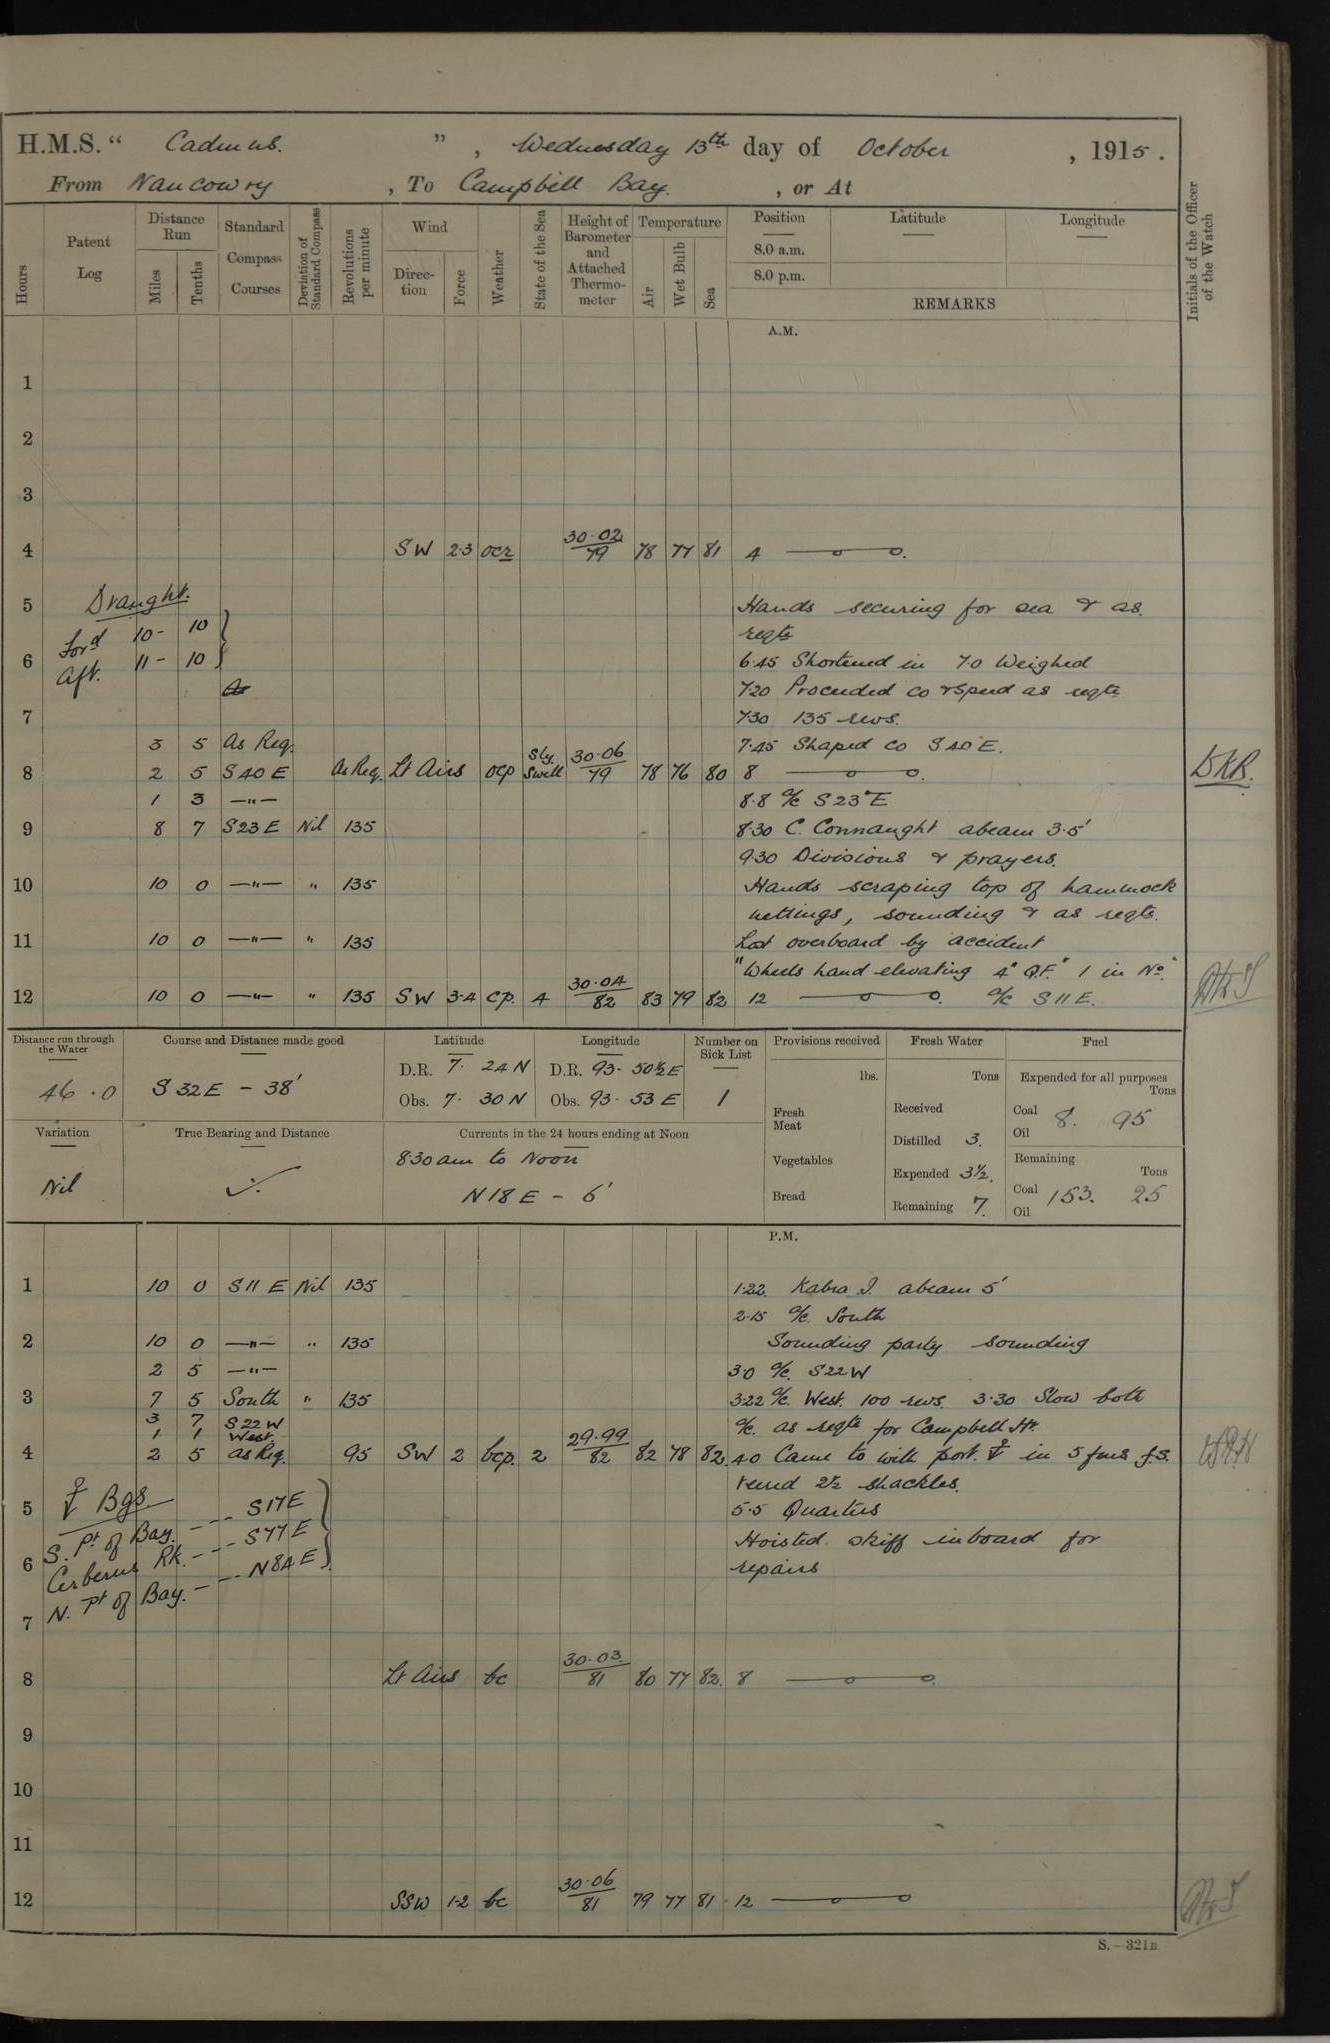 H.M.S. " Cadmus. " , Wednesday 13th day of October , 1915.
From Nancowry , To Campbell Bay. , or At
Hours
Patent Log
Distance Run
Miles
Tenths
Standard Compass Courses
Deviation of Standard Compass
Revolutions per minute
Wind
Direction
Force
Weather
State of the Sea
Height of Barometer and Attached Thermometer
Temperature
Air
Wet Bulb
Sea
Position
8.0 a.m.
8.0 p.m.
Latitude
Longitude
REMARKS
Initials of the Officer of the Watch
A.M.
1
2
3
4 SW 2·3 ocr 30·02/79 78 77 81 4
5 Draught. Hands securing for sea & as
Ford 10 - 10 reqte
6 Aft. 11 - 10 6·45 Shortened in 7·0 Weighed
7·20 Proceeded co & speed as reqte
7 7·30 135 revs.
3 5 As Req. 7·45 Shaped co S 40 E.
8 2 5 S 40 E As Req. Lt Airs ocp Sly. Swell 30·06/79 78 76 80 8
1 3 —"— 8·8 a/c S 23° E
9 8 7 S 23 E Nil 135 8·30 C. Connaught abeam 3·5'
9·30 Divisions & prayers.
10 10 0 —"— " 135 Hands scraping top of hammock
nettings, sounding & as reqte.
11 10 0 —"— " 135 Lost overboard by accident
"Wheels hand elevating 4" Q.F." 1 in No.
12 10 0 —"— " 135 SW 3·4 cp. 4 30·04/82 83 79 82 12 a/c S 11 E.
Distance run through the Water
46 . 0
Course and Distance made good
S 32 E - 38'
Latitude
D.R. 7· 24 N
Obs. 7· 30 N
Longitude
D.R. 93- 50½ E
Obs. 93- 53 E
Number on Sick List
1
Provisions received
lbs.
Fresh Meat
Vegetables
Bread
Fresh Water
Tons
Received
Distilled 3.
Expended 3½.
Remaining 7.
Fuel
Expended for all purposes
Tons
Coal 8. 95
Oil
Remaining
Tons
Coal 153. 25
Oil
Variation
Nil
True Bearing and Distance
Currents in the 24 hours ending at Noon
8·30 am to Noon
N 18 E - 6'
P.M.
1 10 0 S 11 E Nil 135 1·22. Kabra I. abeam 5'
2·15 a/c. South
2 10 0 —"— " 135 Sounding party sounding
2 5 —"— 3·0 a/c. S 22 W
3 7 5 South " 135 3·22 a/c. West. 100 revs. 3·30 Slow both
3 7 S 22 W a/c. as reqte for Campbell Hr.
1 1 West.
4 2 5 as Req. 95 SW 2 bcp. 2 29·99/82 82 78 82 4·0 Came to with port ⚓ in 5 fms f.s.
⚓ Bgs veered 2½ shackles.
5 S. Pt of Bay. --- S 17 E 5·5 Quarters
Cerberus Rk. --- S 77 E Hoisted skiff inboard for
6 N. Pt of Bay. --- N 84 E repairs
7
8 Lt Airs bc 30·03/81 80 77 82. 8
9
10
11
12 SSW 1·2 bc 30·06/81 79 77 81 12
S.—321B